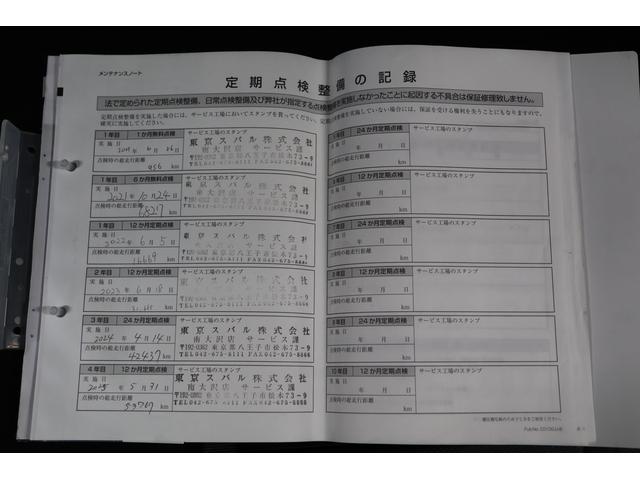 メンテナンスノート
定期点検整備の記録
法で定められた定期点検整備、日常点検整備及び弊社が指定する点検を実施しなかったことに起因する不具合は保証修理致しません。
定期点検整備を実施した場合には、サービス工場においてスタンプを貰ってください。
確実に実施してください。
実施していない場合には、保証を受ける権利を失うことにもなりますので、
1年目 1か月無料点検
サービス工場のスタンプ
実施日
点検時の総走行距離
956 km
東京スバル株式会社
南大沢店 サービス課
〒192-0362 東京都八王子市松木73-9
TEL042-675-8111 FAX042-675-8866
1年目 6か月無料点検
サービス工場のスタンプ
実施日
2021年10月24日
点検時の総走行距離
km
東京スバル株式会社
南大沢店 サービス課
〒192-0362 東京都八王子市松木73-9
TEL042-675-8111 FAX042-675-8866
1年目 12か月定期点検
サービス工場のスタンプ
実施日
2022年6月5日
点検時の総走行距離
km
東京スバル株式会社
〒192-0362 東京都八王子市松木73-9
TEL042-675-8111 FAX042-675-8866
2年目 12か月定期点検
サービス工場のスタンプ
実施日
2023年6月18日
点検時の総走行距離
km
3年目 24か月定期点検
サービス工場のスタンプ
実施日
2024年4月14日
点検時の総走行距離
42437 km
東京スバル株式会社
南大沢店 サービス課
〒192-0362 東京都八王子市松木73-9
TEL042-675-8111 FAX042-675-8866
4年目 12か月定期点検
サービス工場のスタンプ
実施日
2025年5月31日
点検時の総走行距離
53767 km
東京スバル株式会社
南大沢店 サービス課
〒192-0362 東京都八王子市松木73-9
TEL042-675-8111 FAX042-675-8866
24か月定期点検
サービス工場のスタンプ
年 月 日
点検時の総走行距離
km
12か月定期点検
サービス工場のスタンプ
年 月 日
点検時の総走行距離
km
7年目 24か月定期点検
サービス工場のスタンプ
実施日
年 月 日
点検時の総走行距離
km
12か月定期点検
サービス工場のスタンプ
実施日
年 月 日
点検時の総走行距離
km
24か月定期点検
サービス工場のスタンプ
実施日
年 月 日
点検時の総走行距離
km
10年目 12か月定期点検
サービス工場のスタンプ
実施日
年 月 日
点検時の総走行距離
km